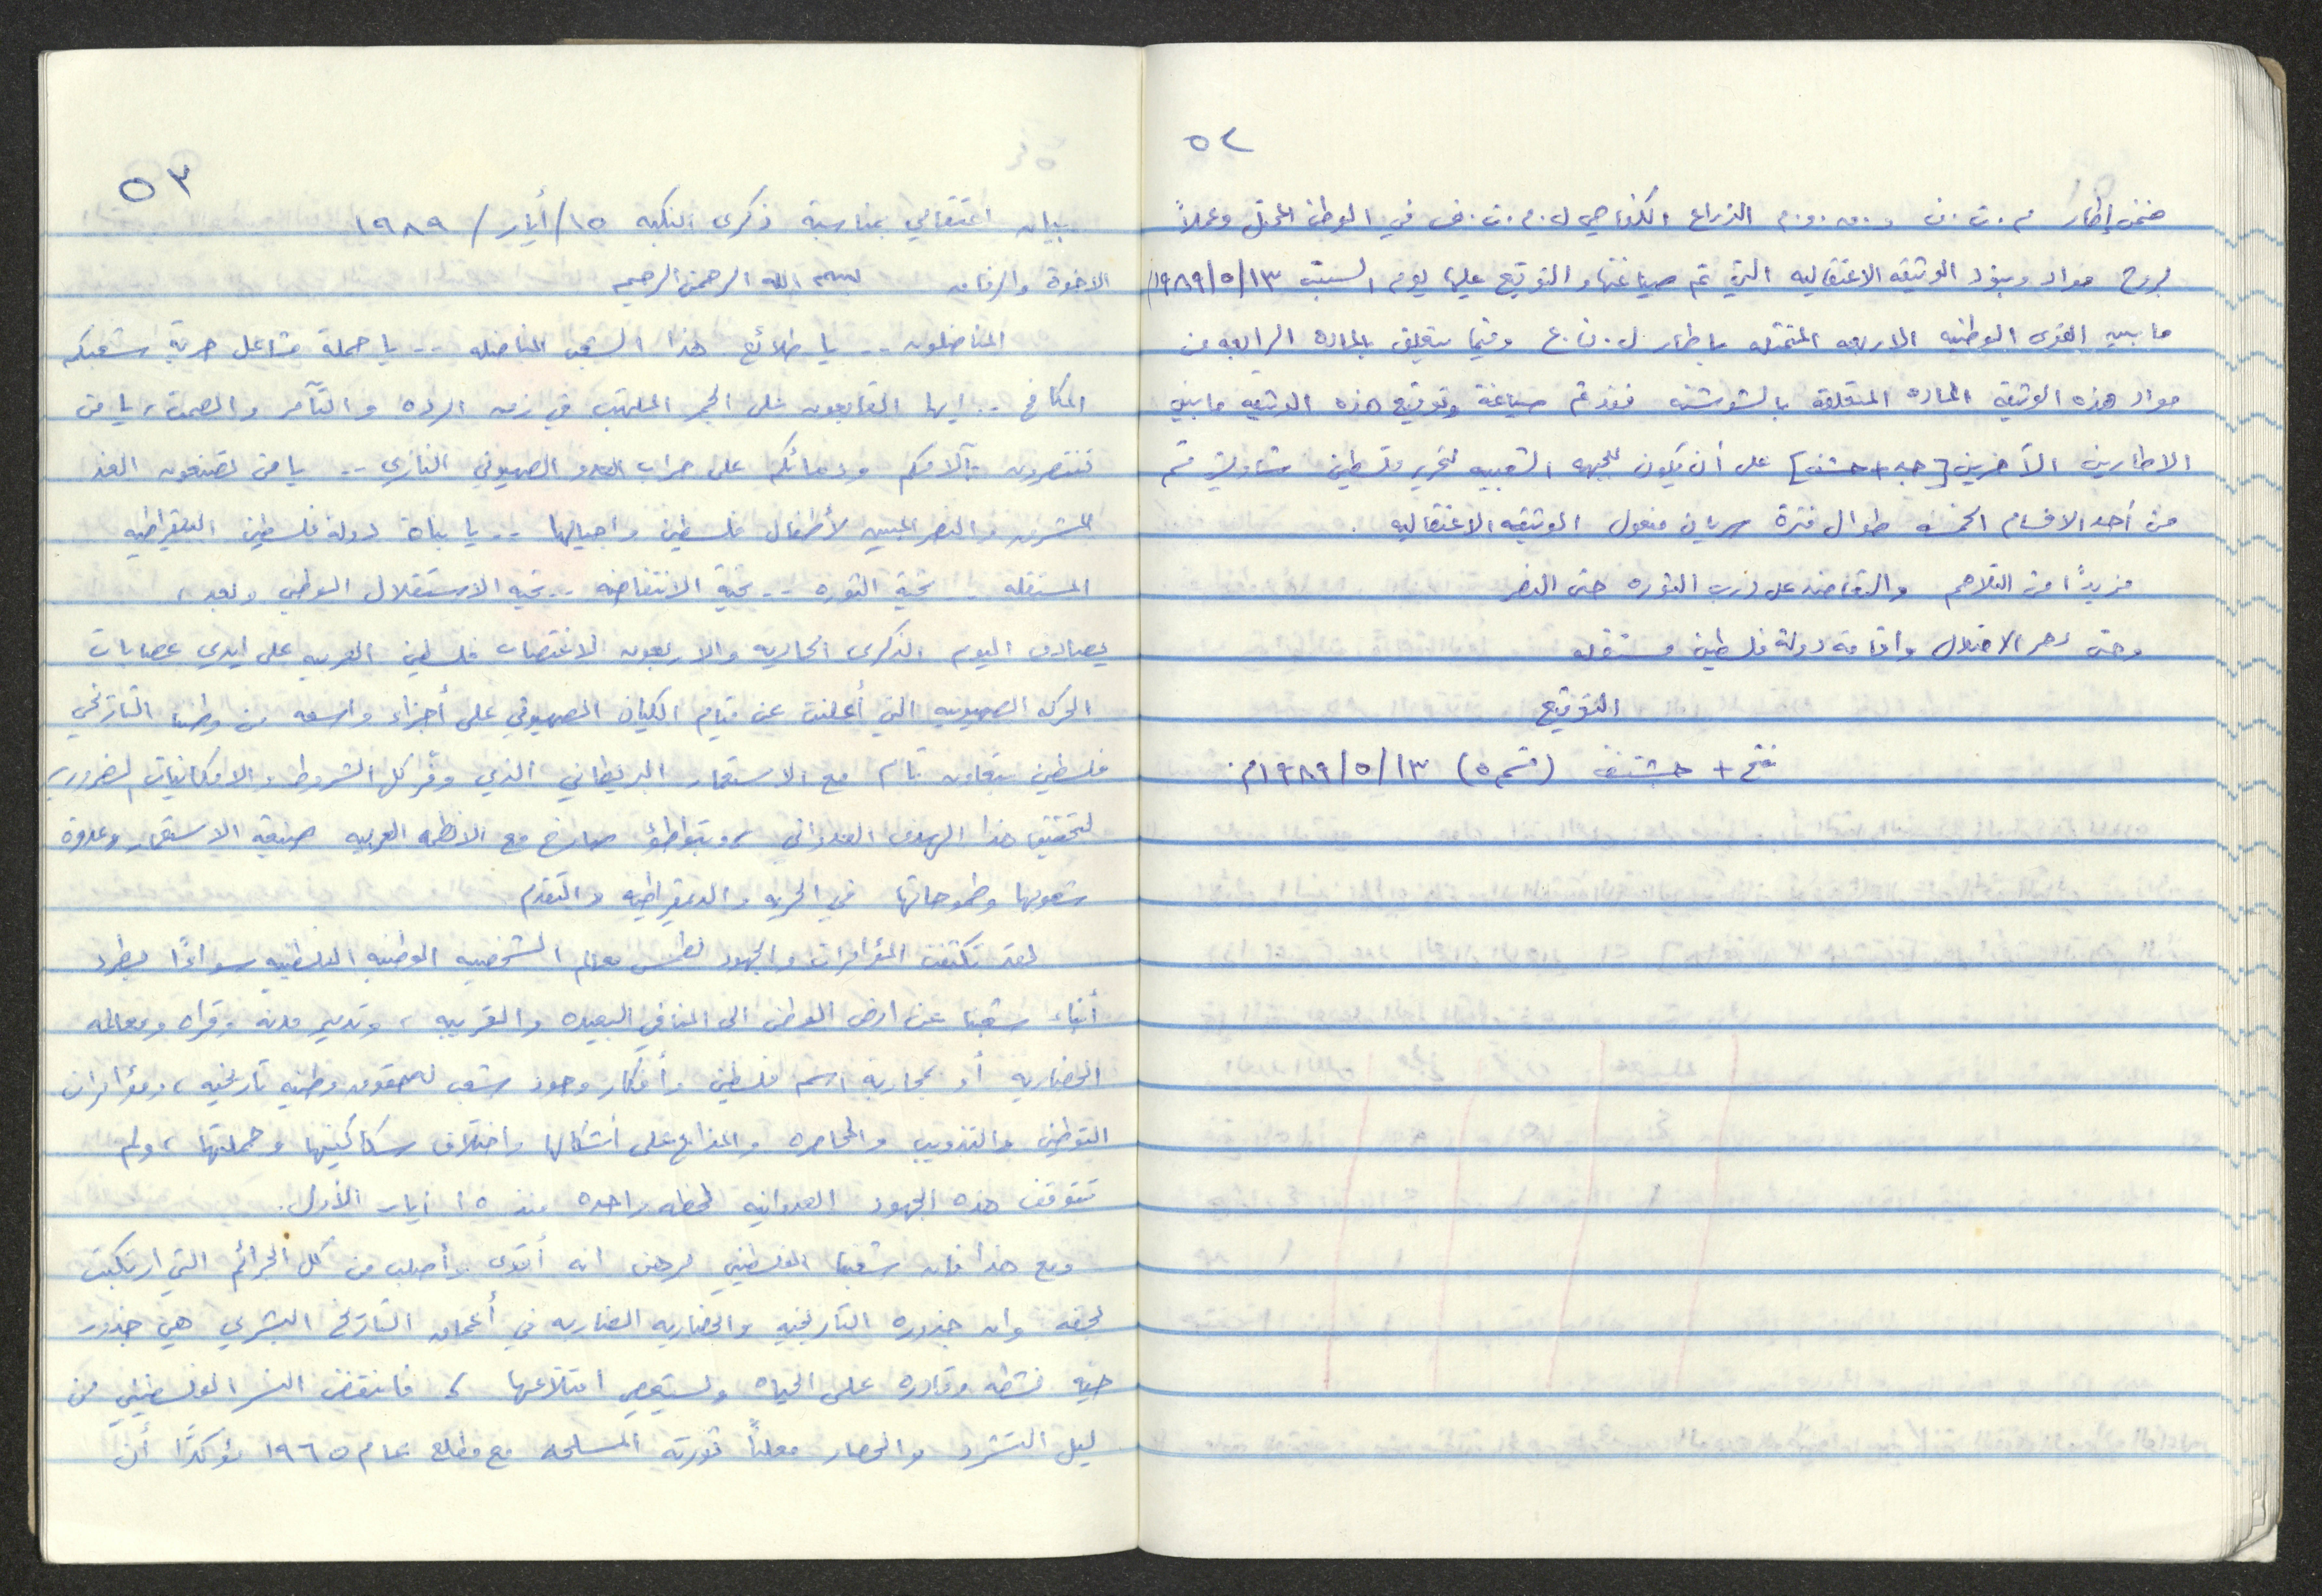 ٥٢
ضمن إطار م.ت.ف و.ق.و.م الذراع الكفاحي ل.م.ت.ف في الوطن المحتل وعملاً
بروح مواد وبنود الوثيقه الاعتقاليه التي تم صياغتها والتوقيع عليها يوم السبت ١٣/٥/١٩٨٩
ما بين القوى الوطنيه الاربعه المتمثله باطار ل.ن.ع وفيما يتعلق بالماده الرابعه من
مواد هذه الوثيقه الماده المتعلقه بالشوشيه فقد تم صياغة وتوقيع هذه الوثيقه مابين
الاطارين الآخرين [جبه + حشف] على أن يكون للجبهه الشعبيه لتحرير فلسطين شاويش قسم
من أحد الاقسام الخمسه طوال فترة سريان مفعول الوثيقه الاعتقاليه.
مزيداً من التلاحم والتعاضد على درب الثوره حتى النصر
وحتى دحر الاحتلال واقامة دولة فلسطين مستقله
التوقيع
فتح + جشتف (قسم ٥) ١٣/٥/١٩٨٩م.
٥٣
بيان اعتقالي بمناسبة ذكرى النكبه ١٥/أيار/١٩٨٩
الاخوة والرفاق بسم الله الرحمن الرحيم
المناضلون .. يا طلائع هذا الشعب المناضله .. يا حملة مشاعل حرية شعبكم
المكافح .. ايها القابعون على الجمر الملتهب في زمن الرده والتآمر والصمت، يا من
تنتصرون بآلامكم ودمائكم على حراب العدو الصهيوني النازي .. يا من تصنعون الغد
المشرق والنصر المبين لأطفال فلسطين واجيالها .. يا بناة دولة فلسطين الديمقراطيه
المستقله .. تحية الثوره .. تحية الانتفاضه .. تحيه الاستقلال الوطني وبعد،
يصادف اليوم الذكرى الحاديه والاربعون لاغتصاب فلسطين العربيه على ايدي عصابات
الحركه الصهيونيه التي أعلنت عن قيام الكيان الصهيوني على أجزاء واسعه من وطننا التاريخي
فلسطين بتعاون تام مع الاستعمار البريطاني الذي وفّر كل الشروط والامكانيات الضروريه
لتحقيق هذا الهدف العدواني، وبتواطؤ صارخ مع الانظمه العربيه صنيعة الاستعمار وعدوة
شعوبها وطموحاتها في الحريه والديمقراطيه والتقدم
لقد تكثفت المؤامرات والجهود لطمس معالم الشخصيه الوطنيه الفلسطنيه سواءًا بطرد
أبناء شعبنا عن ارض الوطن الى المنافي البعيده والقريبه، وتدمير مدنه وقراه ومعالمه
الحضاريه أو بمحاربة اسم فلسطين وأنكار وجود شعب له حقوق وطنيه تاريخيه، ومؤامرات
التوطين والتذويب والمحاصره والمذابح على أشكالها واختلاف سكاكينها وحملتها، ولم
تتوقف هذه الجهود العدوانيه لحظه واحده منذ ١٥ أيار الأول.
ومع هذا فان شعبنا الفلسطيني برهن انه أقوى وأصلب من كل الجرائم التي ارتكبت
بحقه وان جذوره التاريخيه والحضاريه الضاربه في أعماق التاريخ البشري هي جذور
حيّه نشطه وقادره على الحياه ويستعصي اقتلاعها، فانتفض النسر الفلسطيني من
ليل التشرد والحصار معلناً ثورته المسلحه مع مطلع عام ١٩٦٥ مؤكدًا أن